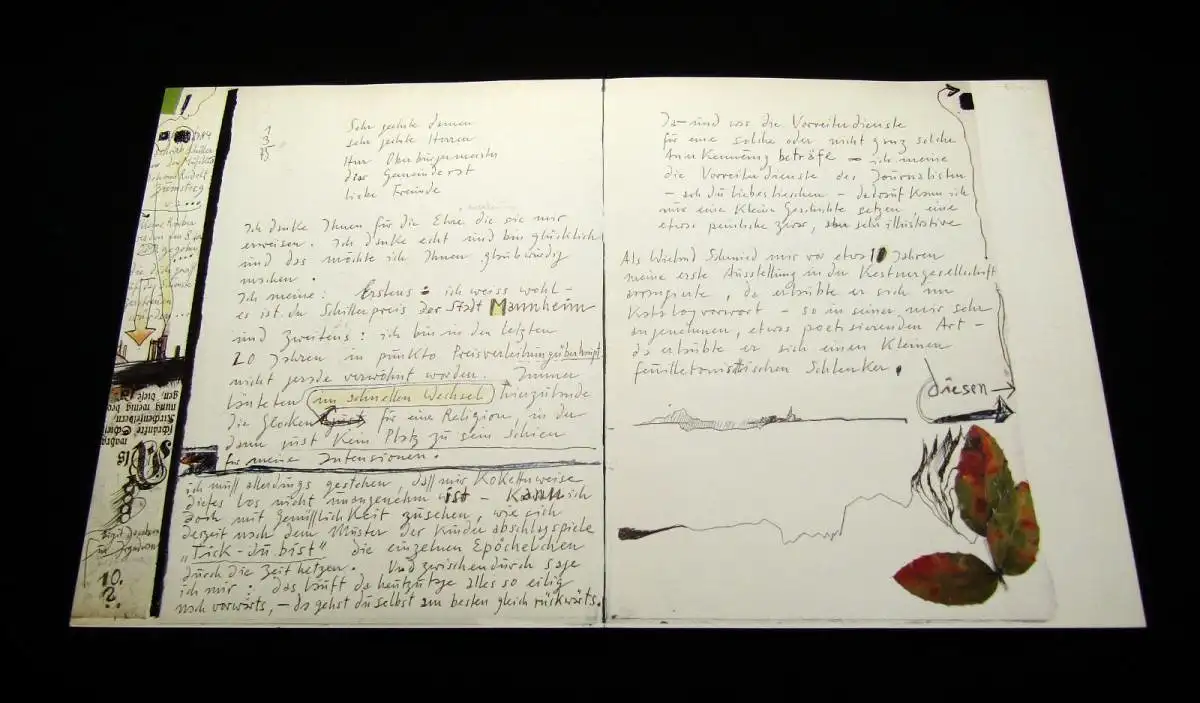 Sehr geehrte Damen
sehr geehrte Herren
Herr Oberbürgermeister
des Gemeinderat
liebe Freunde
Ich danke Ihnen für die Ehre die sie mir
erweisen. Ich danke echt und bin glücklich
und das möchte ich Ihnen glaubwürdig
machen.
Ich meine: Erstens: ich weiss wohl –
es ist der Schillerpreis der Stadt Mannheim
und Zweitens: ich bin in den letzten
20 Jahren in punkto Preisverleihung überhaupt
nicht gerade verwöhnt worden. Immer
läuteten im schnellen Wechsel hierzulande
die Glocken für eine Religion, in der
dann just kein Platz zu sein schien
für meine Intensionen.
ich muß allerdings gestehen, daß mir Koketterweise
dieses Los nicht unangenehm ist – Kann ich
doch mit Gemütlichkeit zusehen, wie sich
derzeit nach dem Muster der Kinder abschlagspiele
"Tick-du bist" die einzelnen Epöchelchen
durch die Zeit hetzen. Und zwischendurch sage
ich mir: das läuft da heutzutage alles so eilig
nach vorwärts, – da gehst du selbst am besten gleich rückwärts.
10.
2.
Da – und was die Vorreiterdienste
für eine solche oder nicht ganz solche
Annerkennung beträfe – ich meine
die Vorreiterdienste des Journalisten
– ach du liebes bischen – darauf kann ich
nur eine kleine Geschichte setzen, eine
etwas peinliche zwar, sehr illustrative
Als Wieland Schmied mir vor etwa 10 Jahren
meine erste Ausstellung in der Kestnergesellschaft
arrangierte, da erlaubte er sich im
Katalogvorwort – so in seiner mir sehr
angenehmen, etwas poetisierenden Art –
da erlaubte er sich einen kleinen
feuilletonistischen Schlenker.
diesen